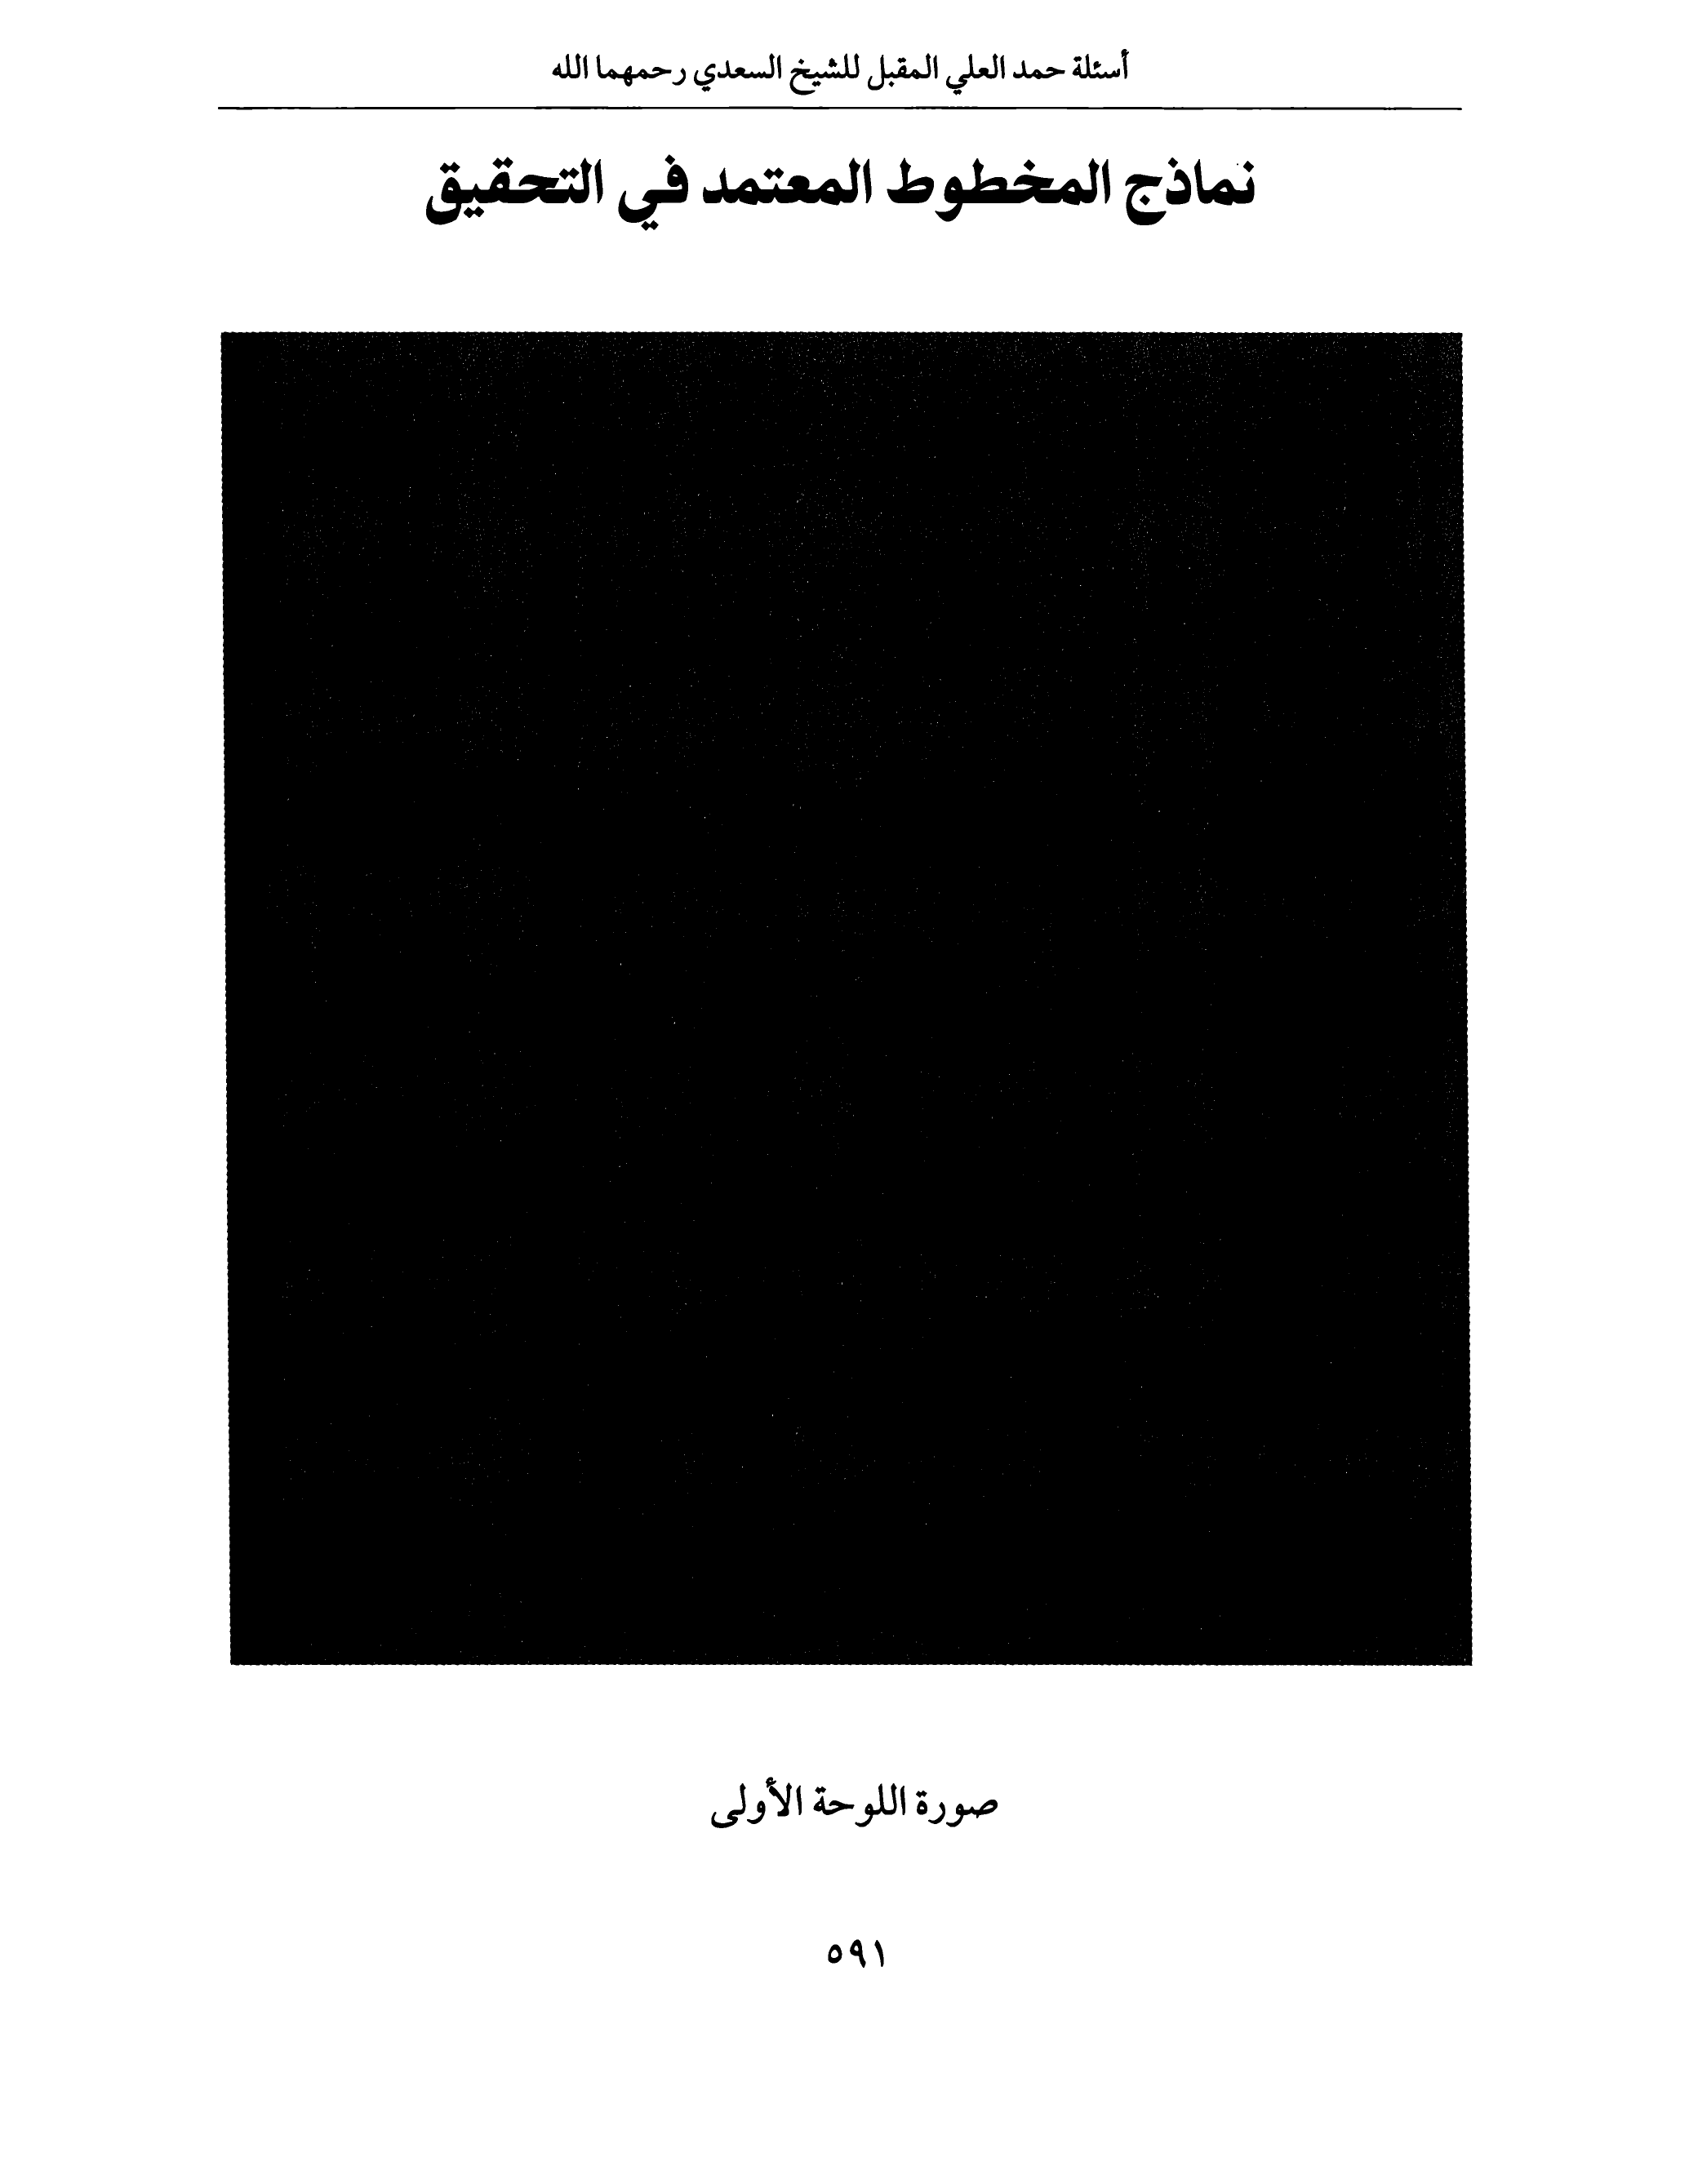 أسئلة حمد العلي المقبل للشيخ السعدي رحمهما الله
نماذج المخطوط المعتمد في التحقيق
صورة اللوحة الأولى
٥٩١